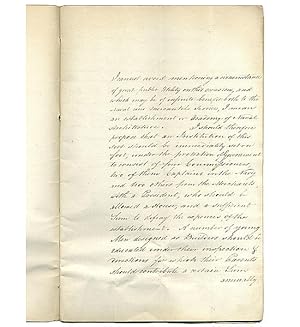 I cannot avoid mentioning a circumstance
of great Public Utility on this occasion, and
which may be of infinite benefit both to the
Naval and Mercantile Service, I mean
an establishment or Academy of Naval
Architecture. I should therefore
propose that an Institution of this
sort should be immediately set on
foot, under the protection of Government
to consist of four Commissioners,
two of them Captains in the Navy
and two others from the Merchants
with a President, who should be
allowed a House, and a sufficient
Sum to defray the expences of the
establishment. A number of young
Men designed as Builders should be
educated under their inspection &
directions for which their Parents
should contribute a certain Sum
annually.